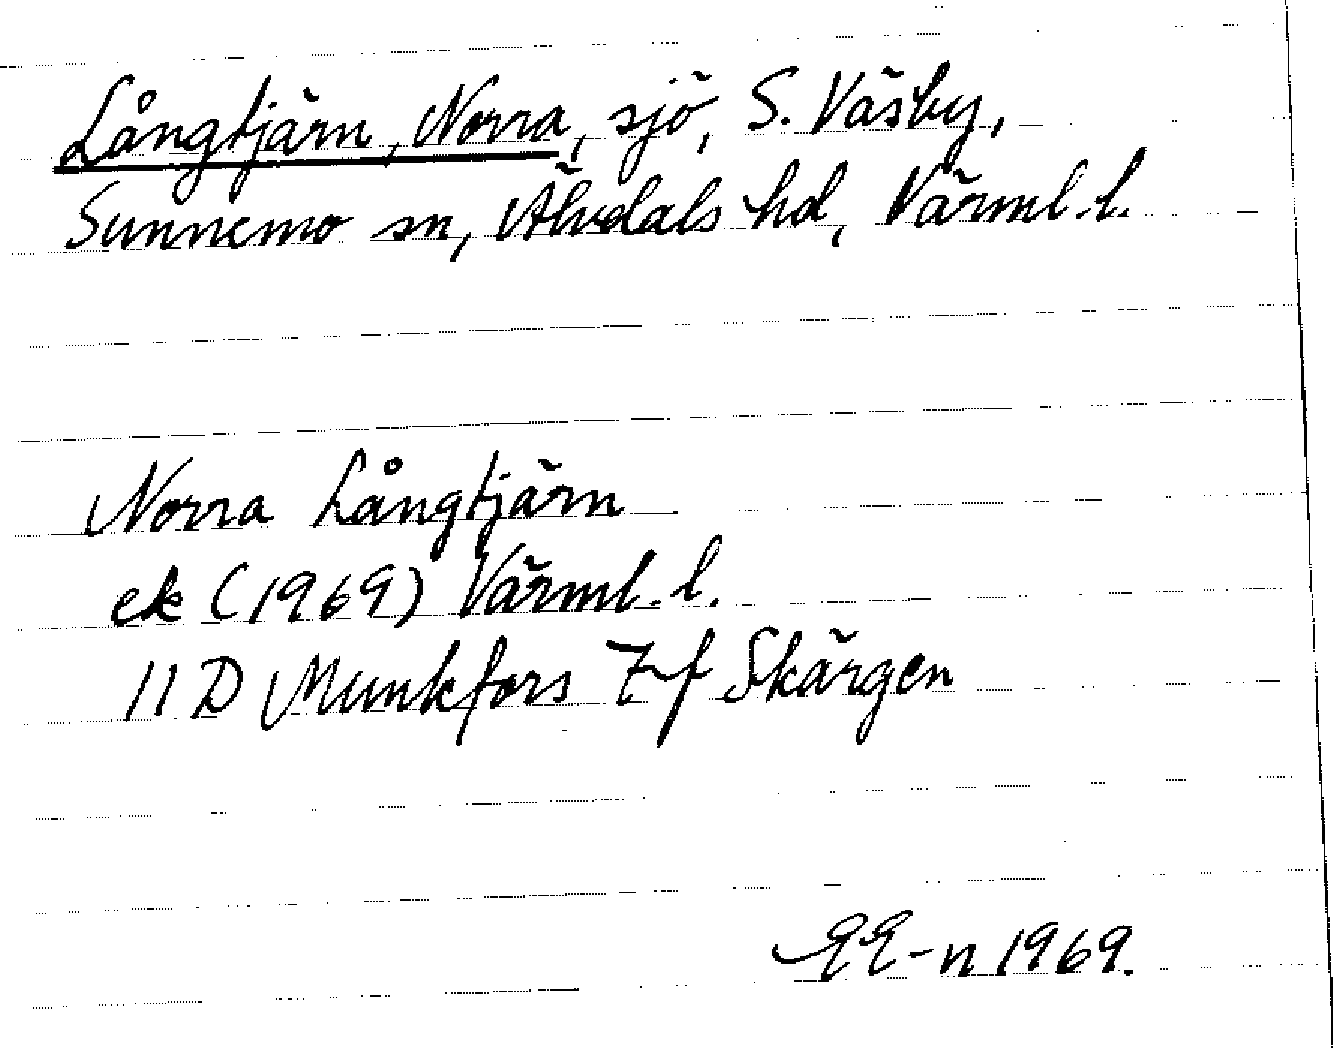 Långtjärn, Norra, sjö, S. Väsby,
Sunnemo sn, Älvdals hd, Värml. l.
Norra Långtjärn
ek (1969) Värml. l.
11 D Munkfors 7 f Skärgen
EE-n 1969.